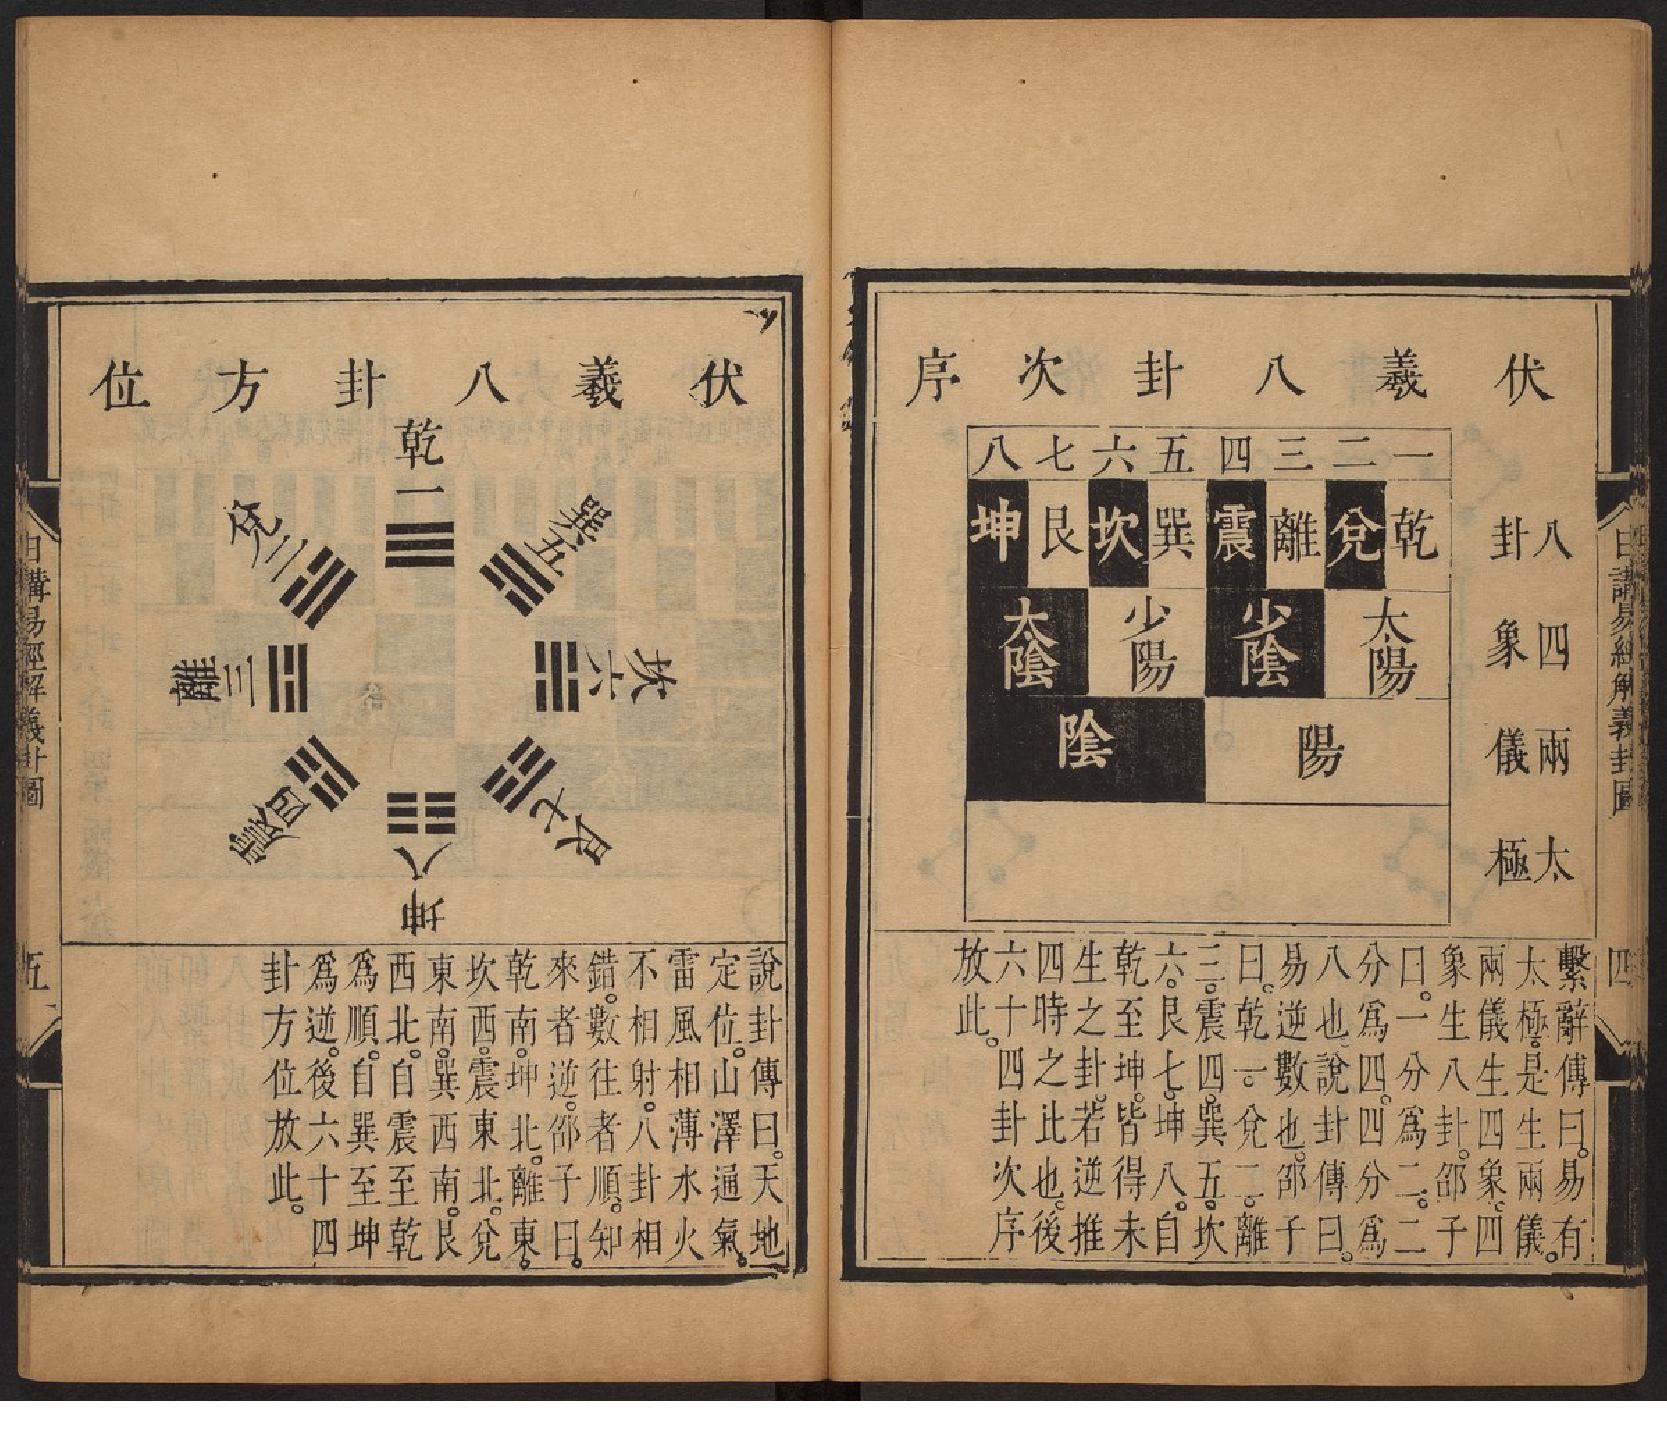 伏羲八卦次序
一二三四五六七八
乾兌離震巽坎艮坤
太陽少陰少陽太陰
陽陰
八卦
四象
兩儀
太極
繫辭傳曰。易有
太極。是生兩儀。
兩儀生四象。四
象生八卦。邵子
曰。一分爲二。二
分爲四。四分爲
八也。說卦傳曰。
易逆數也。邵子
曰。乾一。兌二。離
三。震四。巽五。坎
六。艮七。坤八。自
乾至坤。皆得未
生之卦。若逆推
四時之比也。後
六十四卦次序
放此。
日講易經解義卦圖
四
伏羲八卦方位
乾一
兌二
離三
震四
巽五
坎六
艮七
坤八
說卦傳曰。天地
定位。山澤通氣。
雷風相薄水火
不相射。八卦相
錯。數往者順。知
來者逆。邵子曰。
乾南。坤北。離東。
坎西。震東北。兌
東南。巽西南。艮
西北。自震至乾
爲順。自巽至坤
爲逆。後六十四
卦方位放此。
日講易經解義卦圖
五